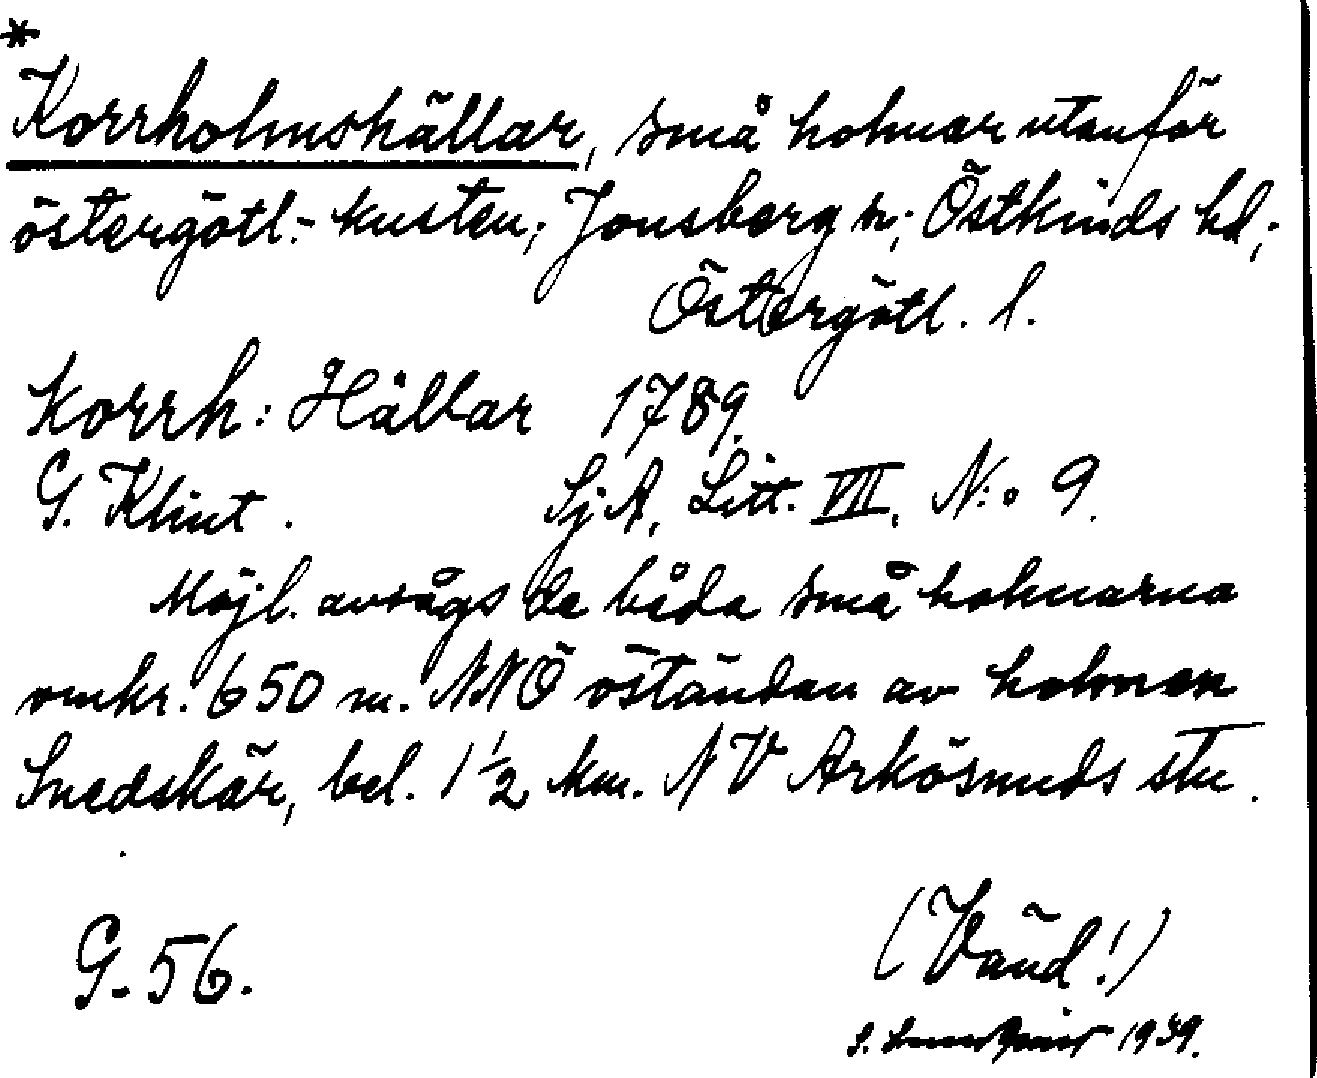 *
Korrholmshällar, små holmar utanför
östergötl.-kusten; Jonsberg sn; Östkinds hd;
Östergötl. l.
Korrh: Hällar 1789.
G. Klint. SjA, Litt. VII, N:o 9.
Möjl. avsågs de båda små holmarna
omkr. 650 m. NNÖ öständan av holmen
Snedskär, bel. 1 1/2 km. NV Arkösunds stn.
G-56.
(Vänd!)
S. 1939.